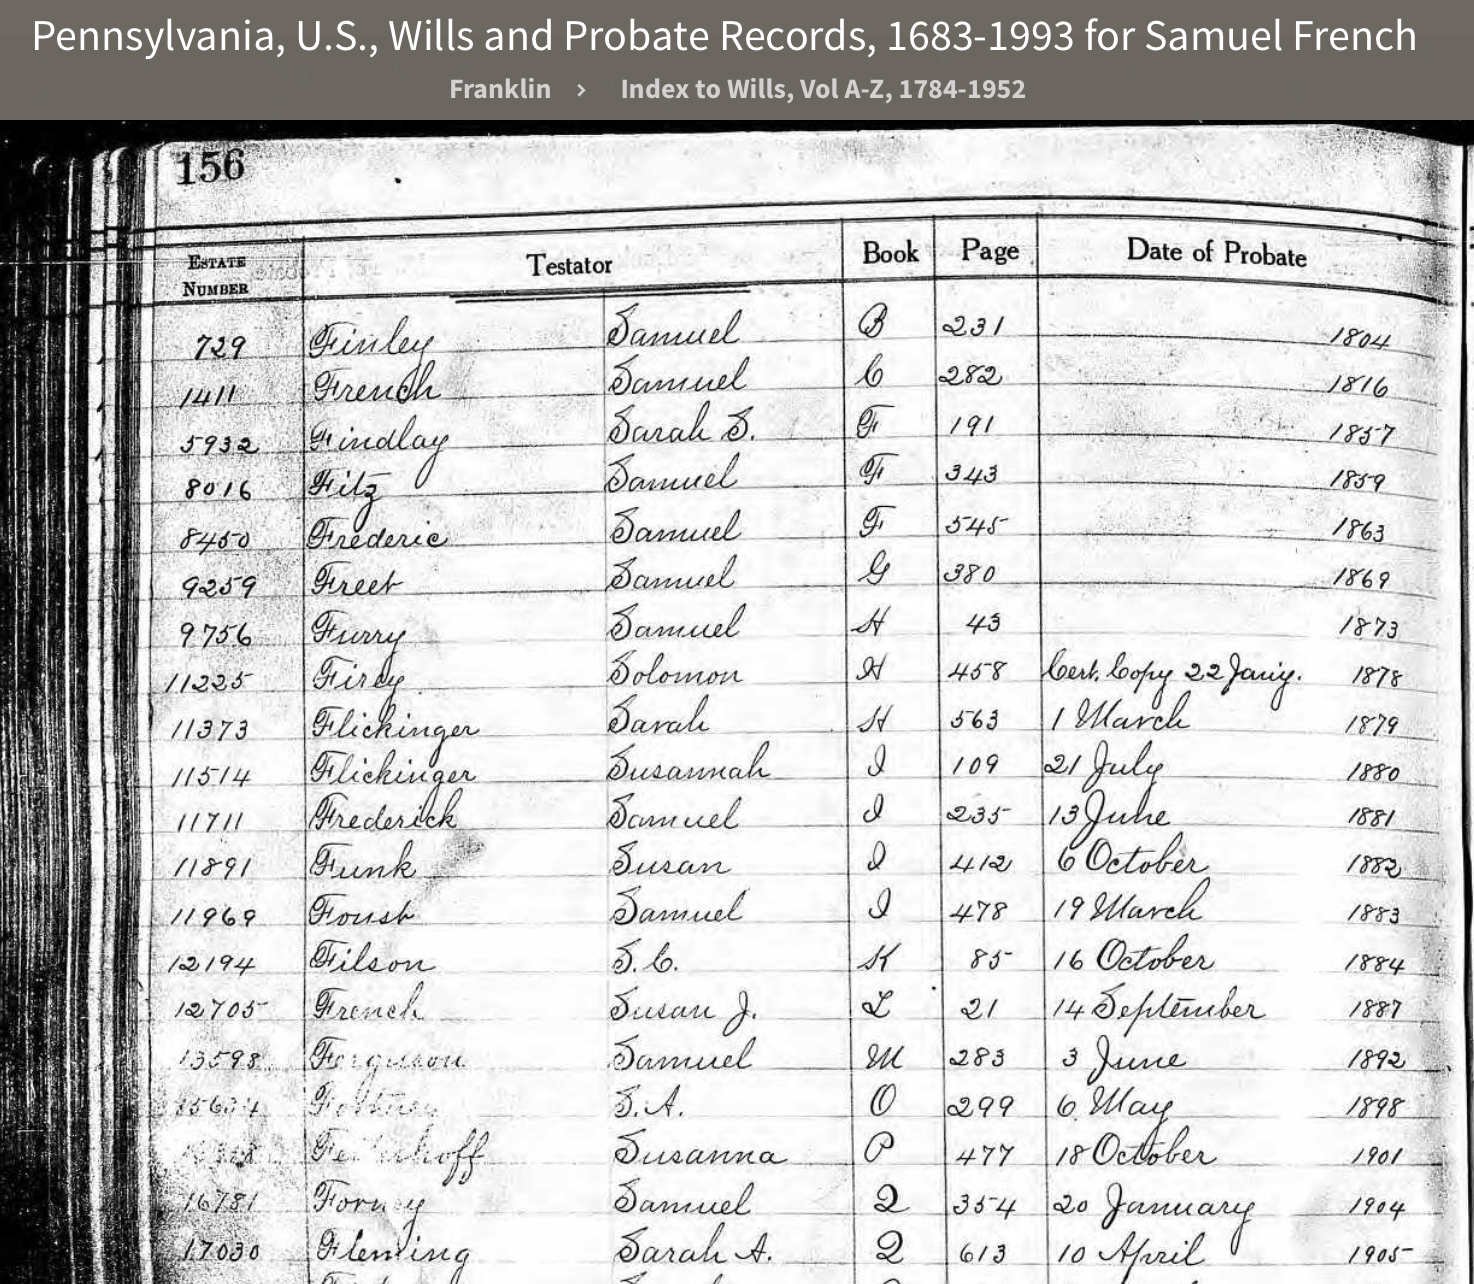 Pennsylvania, U.S., Wills and Probate Records, 1683-1993 for Samuel French
Franklin > Index to Wills, Vol A-Z, 1784-1952
156
ESTATE NUMBER Testator Book Page Date of Probate
729 Finley Samuel B 231 1804
1411 French Samuel C 282 1816
5932 Findlay Sarah S. F 191 1857
8016 Fitz Samuel F 343 1859
8450 Frederic Samuel F 545 1863
9259 Freet Samuel G 380 1869
9756 Furry Samuel H 43 1873
11225 Firey Solomon H 458 Cert. Copy 22 Jany. 1878
11373 Flickinger Sarah H 563 1 March 1879
11514 Flickinger Susannah I 109 21 July 1880
11711 Frederick Samuel I 235 13 June 1881
11891 Funk Susan I 412 6 October 1882
11969 Foust Samuel I 478 19 March 1883
12194 Filson S. C. K 85 16 October 1884
12705 French Susan J. L 21 14 September 1887
13598 Ferguson Samuel M 283 3 June 1892
S. A. O 299 6 May 1898
Susanna P 477 18 October 1901
16781 Forney Samuel Q 354 20 January 1904
17030 Fleming Sarah A. Q 613 10 April 1905